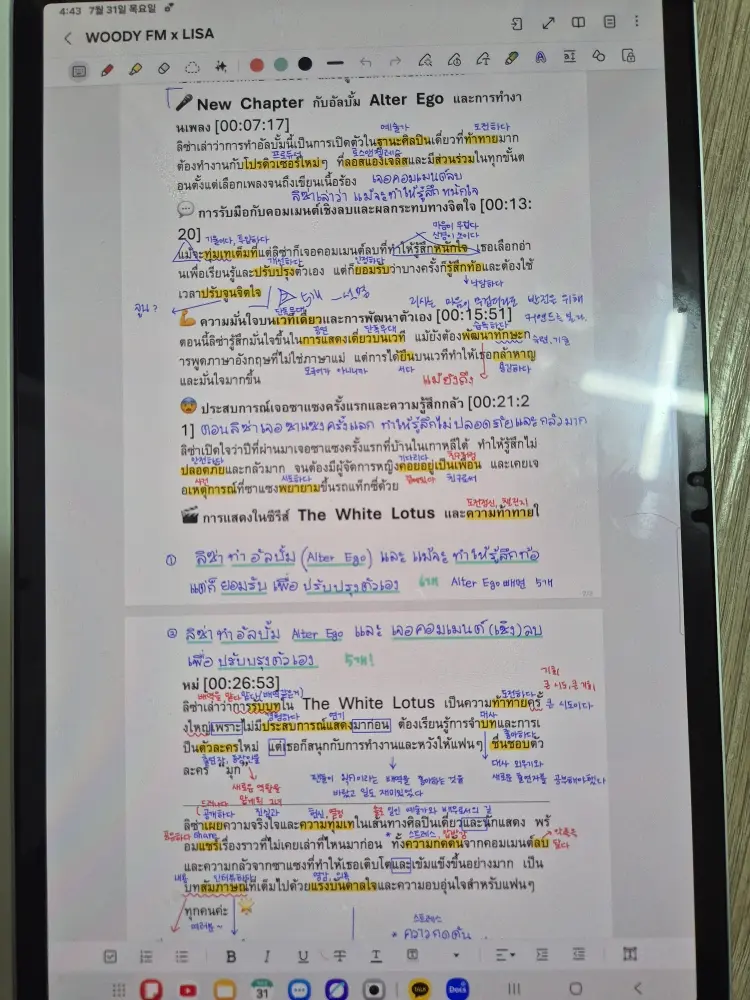 4:43 7월 31일 목요일
WOODY FM x LISA
🎤 New Chapter กับอัลบั้ม Alter Ego และการทำงา
นเพลง [00:07:17]
예술가 도전하다
ลิซ่าเล่าว่าการทำอัลบั้มนี้เป็นการเปิดตัวในฐานะศิลปินเดี่ยวที่ท้าทายมาก
프로듀서 로스앤젤레스
ต้องทำงานกับโปรดิวเซอร์ใหม่ๆ ที่ลอสแองเจลิสและมีส่วนร่วมในทุกขั้นต
อนตั้งแต่เลือกเพลงจนถึงเขียนเนื้อร้อง เจอคอมเมนต์ลบ
ลิซ่าเล่าว่า แม้จะทำให้รู้สึกหนักใจ
💬 การรับมือกับคอมเมนต์เชิงลบและผลกระทบทางจิตใจ [00:13:
20]
마음이 무겁다
แม้จะทุ่มเทเต็มที่แต่ลิซ่าก็เจอคอมเมนต์ลบที่ทำให้รู้สึกหนักใจ เธอเลือกอ่า
개선하다 인정하다
นเพื่อเรียนรู้และปรับปรุงตัวเอง แต่ก็ยอมรับว่าบางครั้งก็รู้สึกท้อและต้องใช้
낙담하다
เวลาปรับจูนจิตใจ
จูน?
💪 ความมั่นใจบนเวทีเดี่ยวและการพัฒนาตัวเอง [00:15:51]
공연 단독무대
ตอนนี้ลิซ่ารู้สึกมั่นใจขึ้นในการแสดงเดี่ยวบนเวที แม้ยังต้องพัฒนาทักษะก
ารพูดภาษาอังกฤษที่ไม่ใช่ภาษาแม่ แต่การได้ยืนบนเวทีทำให้เธอกล้าหาญ
모국어가 아니니까 서다 용감하다
และมั่นใจมากขึ้น แม้ยังถึง
😨 ประสบการณ์เจอซาแซงครั้งแรกและความรู้สึกกลัว [00:21:2
1] ตอนลิซ่าเจอซาแซงครั้งแรก ทำให้รู้สึกไม่ปลอดภัยและกลัวมาก
ลิซ่าเปิดใจว่าปีที่ผ่านมาเจอซาแซงครั้งแรกที่บ้านในเกาหลีใต้ ทำให้รู้สึกไม่
안전하다 기다리다
ปลอดภัยและกลัวมาก จนต้องมีผู้จัดการหญิงคอยอยู่เป็นเพื่อน และเคยเจ
사건 시도하다 친구로써
อเหตุการณ์ที่ซาแซงพยายามขึ้นรถแท็กซี่ด้วย
🎬 การแสดงในซีรีส์ The White Lotus และความท้าทายใ
① ลิซ่า ทำ อัลบั้ม (Alter Ego) และ แม้จะ ทำให้รู้สึกท้อ
แต่ก็ ยอมรับ เพื่อ ปรับปรุงตัวเอง 6개 Alter Ego 빼면 5개
② ลิซ่า ทำ อัลบั้ม Alter Ego และ เจอคอมเมนต์(เชิง)ลบ
เพื่อ ปรับปรุงตัวเอง 5개!
หม่ [00:26:53]
ลิซ่าเล่าว่าการรับบทใน The White Lotus เป็นความท้าทายครั้
งใหญ่เพราะไม่มีประสบการณ์แสดงมาก่อน ต้องเรียนรู้การจำบทและการเ
대사 좋아하다
ป็นตัวละครใหม่ แต่เธอก็สนุกกับการทำงานและหวังให้แฟนๆ ชื่นชอบตัว
ละคร “มุก”
새로운 역할을
맡게 된 리사
팬들이 묵이라는 배역을 좋아하는 것을
바랐고 일도 재미있었다
대사 외우기와
새로운 출연자를 공부해야했다
공개하다 진실과
ลิซ่าเผยความจริงใจและความทุ่มเทในเส้นทางศิลปินเดี่ยวและนักแสดง พร้
อมแชร์เรื่องราวที่ไม่เคยเล่าที่ไหนมาก่อน *ทั้งความกดดันจากคอมเมนต์ลบ
และความกลัวจากซาแซงที่ทำให้เธอเติบโตและเข้มแข็งขึ้นอย่างมาก เป็น
บทสัมภาษณ์ที่เต็มไปด้วยแรงบันดาลใจและความอบอุ่นใจสำหรับแฟนๆ
ทุกคนค่ะ 🌟
여러분~
스트레스
* ความกดดัน
B I U T T
31
TALK Docs